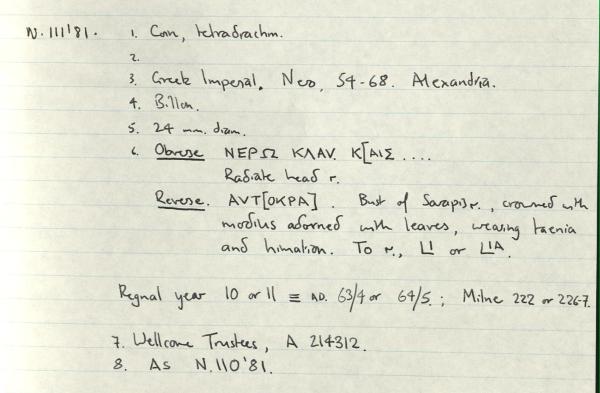 N.111'81. 1. Coin, tetradrachm.
2.
3. Greek Imperial. Nero, 54-68. Alexandria.
4. Billon.
5. 24 mm. diam.
6. Obverse ΝΕΡΩ ΚΛΑV. Κ[ΑΙΣ ....
Radiate head r.
Reverse. ΑVΤ[ΟΚΡΑ]. Bust of Sarapis r., crowned with
modius adorned with leaves, wearing taenia
and himation. To r., LI or LIA.
Regnal year 10 or 11 ≡ AD. 63/4 or 64/5.; Milne 222 or 226-7.
7. Wellcome Trustees, A 214312.
8. As N.110'81.